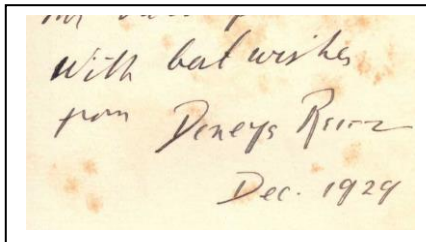 With best wishes
from Deneys Reitz
Dec. 1929